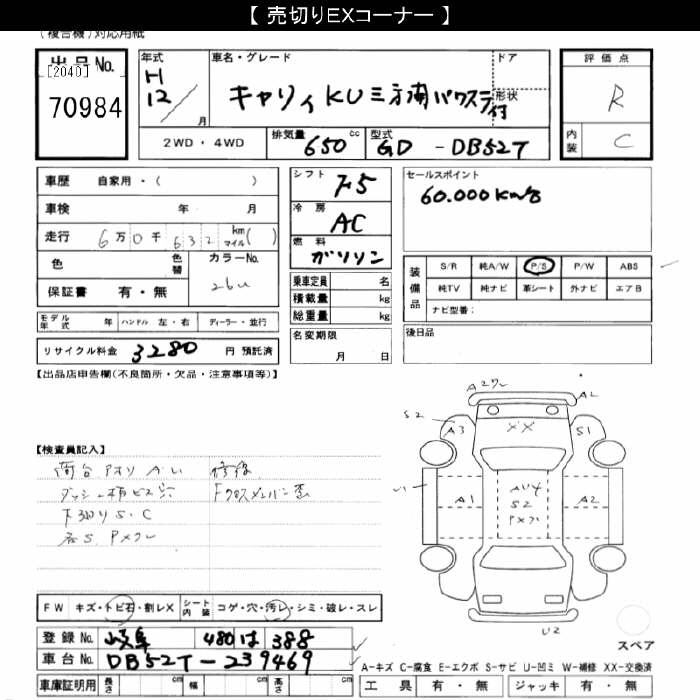 【 売切りEXコーナー 】
(複合機)対応用紙
出品No.
[2040]
70984
年式
H
12/
月
車名・グレード
キャリィ KU三方開パワステ付
ドア
形状
評価点
R
内装
C
2WD・4WD
排気量
650 cc
型式
GD - DB52T
車歴 自家用・( )
車検 年 月
走行 6万0千632 km マイル( )
色
色替
カラーNo.
26U
保証書 有・無
シフト
F5
冷房
AC
燃料
ガソリン
セールスポイント
60.000Km台
装備品
S/R 純A/W P/S P/W ABS
純TV 純ナビ 革シート 外ナビ エアB
ナビ型番:
乗車定員 名
積載量 kg
総重量 kg
モデル年式 年 ハンドル 左・右 ディーラー・並行
名変期限
月 日
後日品
リサイクル料金 3280 円 預託済
【出品店申告欄(不良箇所・欠品・注意事項等)】
A2ワレ
A2
S2
A3
XX
S1
【検査員記入】
荷台アオリ 修復
ダッシュ ビス穴 Fクロスメンバー
下 S.C
S. Pメクレ
A1
S2
Pメクレ
A2
U2
FW キズ・トビ石・割レX シート内装 コゲ・穴・汚レ・シミ・破レ・スレ
登録No. 岐阜 480 は 388
車台No. DB52T-239469
スペア
A-キズ C-腐食 E-エクボ S-サビ U-凹ミ W-補修 XX-交換済
車庫証明用 長さ cm 幅 cm 高さ cm
工具 有・無 ジャッキ 有・無